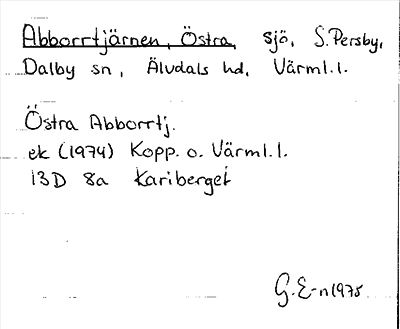 Abborrtjärnen, Östra, sjö, S. Persby,
Dalby sn, Älvdals hd, Värml. l.
Östra Abborrtj.
ek (1974) Kopp. o. Värml. l.
13D 8a Kariberget
G. E-n 1975